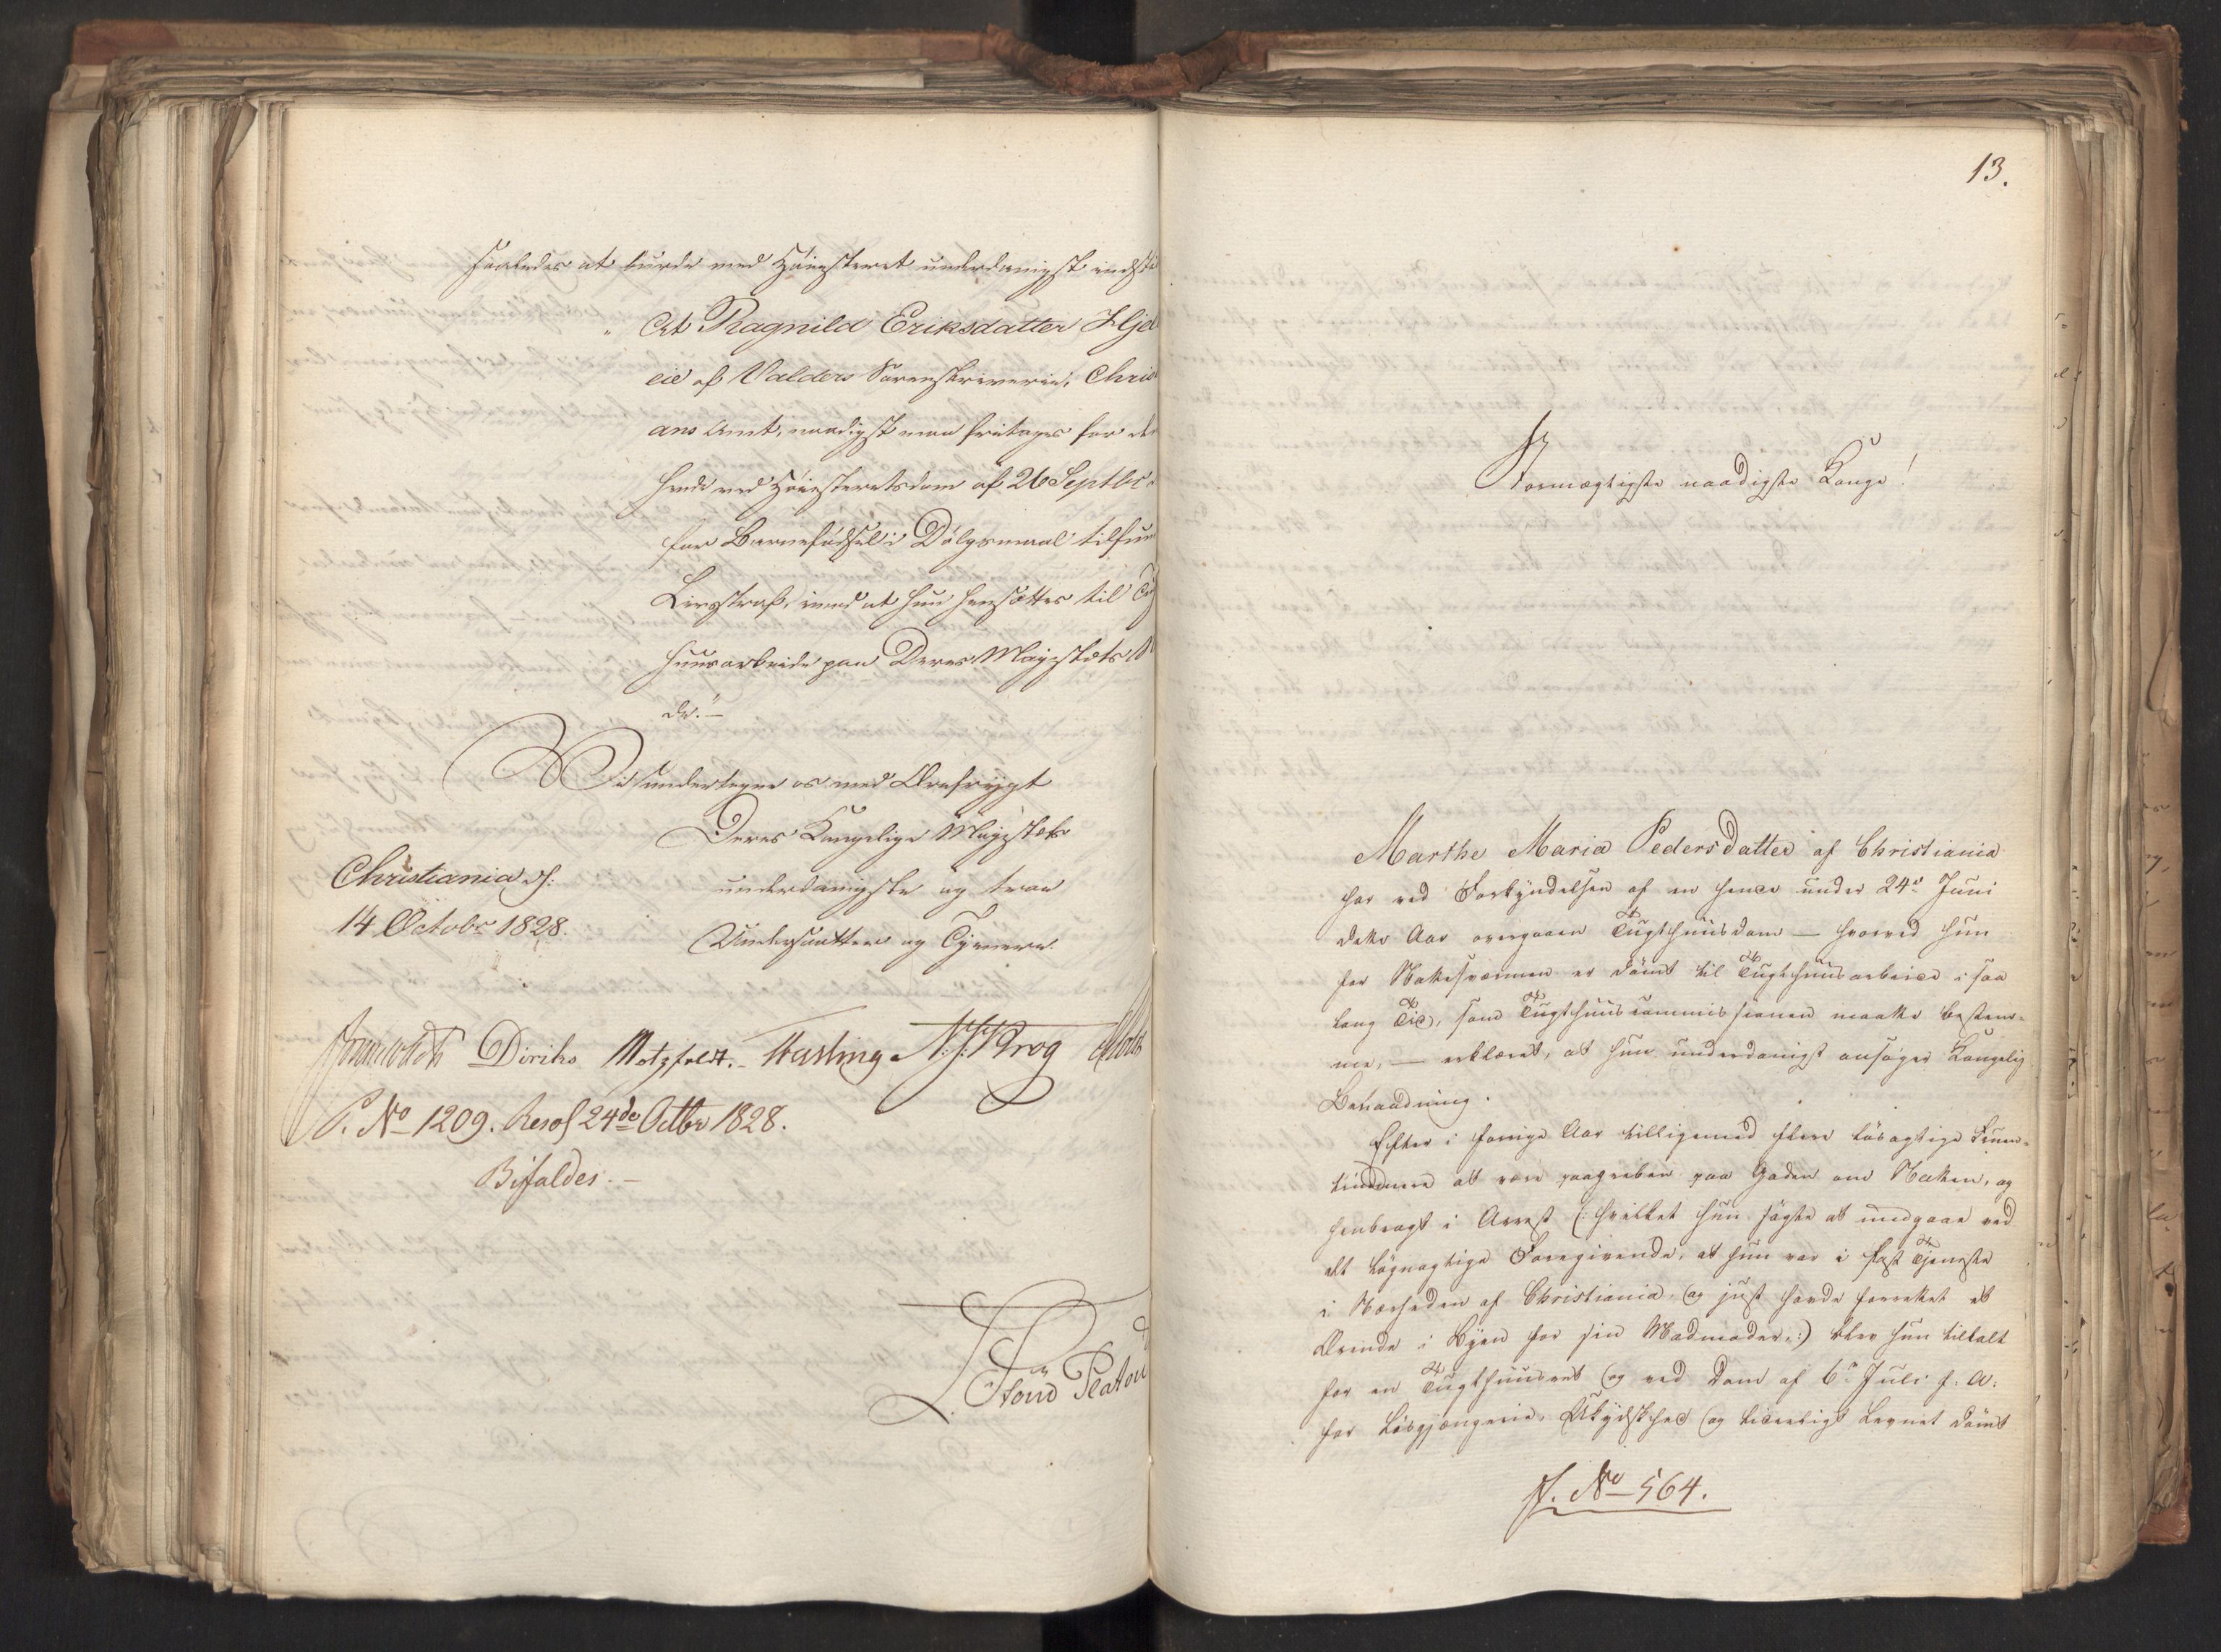 saaledes at burde med Høiesteret underdanigst indsti
" At Ragnild Eriksdatter Hjel
eie af Valders Sorenskriverie, Christi
ans Amt, naadigst maa fritages for den
hende ved Høiesteretsdom af 26 Septbr.
for Barnefødsel i Dølgsmaal tilfun
Livsstraf, imod at hun hensættes til Tug
huusarbeide paa Deres Majestæts N
de."—
Vi undertegne os med Ærefrygt
Deres Kongelige Majestæts
Christiania d:
underdanigste og troe
14 Octobr 1828.
Undersaatter og Tjenere.
Diriks Motzfeldt. Hasting N. J. Krog
P. No 1209. Resol 24de Octbr 1828.
Bifaldes.—
Stoud Platou
13.
Stormægtigste naadigste Konge!
Marthe Maria Pedersdatter af Christiania
har ved Forkyndelsen af en hende under 24de Juni
dette Aar overgaaen Tugthuusdom — hvorved hun
for Natesværmen er dømt til Tugthuusarbeide i saa
lang Tid, som Tugthuuscommissionen maatte bestem-
me, — erklæret, at hun underdanigst ansøger Kongelig
Benaadning.
Efter i forrige Aar tilligemed flere løsagtige Fruen-
timmere at være paagreben paa Gaden om Natten, og
henbragt i Arrest (: hvilket hun søgte at undgaae ved
det løgnagtige Foregivende, at hun var i fast Tjeneste
i Nærheden af Christiania, og just havde forrettet et
Ærinde i Byen for sin Madmoder :) blev hun tiltalt
for en Tugthuusret og ved Dom af 6te Juli f. A.
for Løsgjængerie, Ukydskhed og liderligt Levnet dømt
J. No 564.